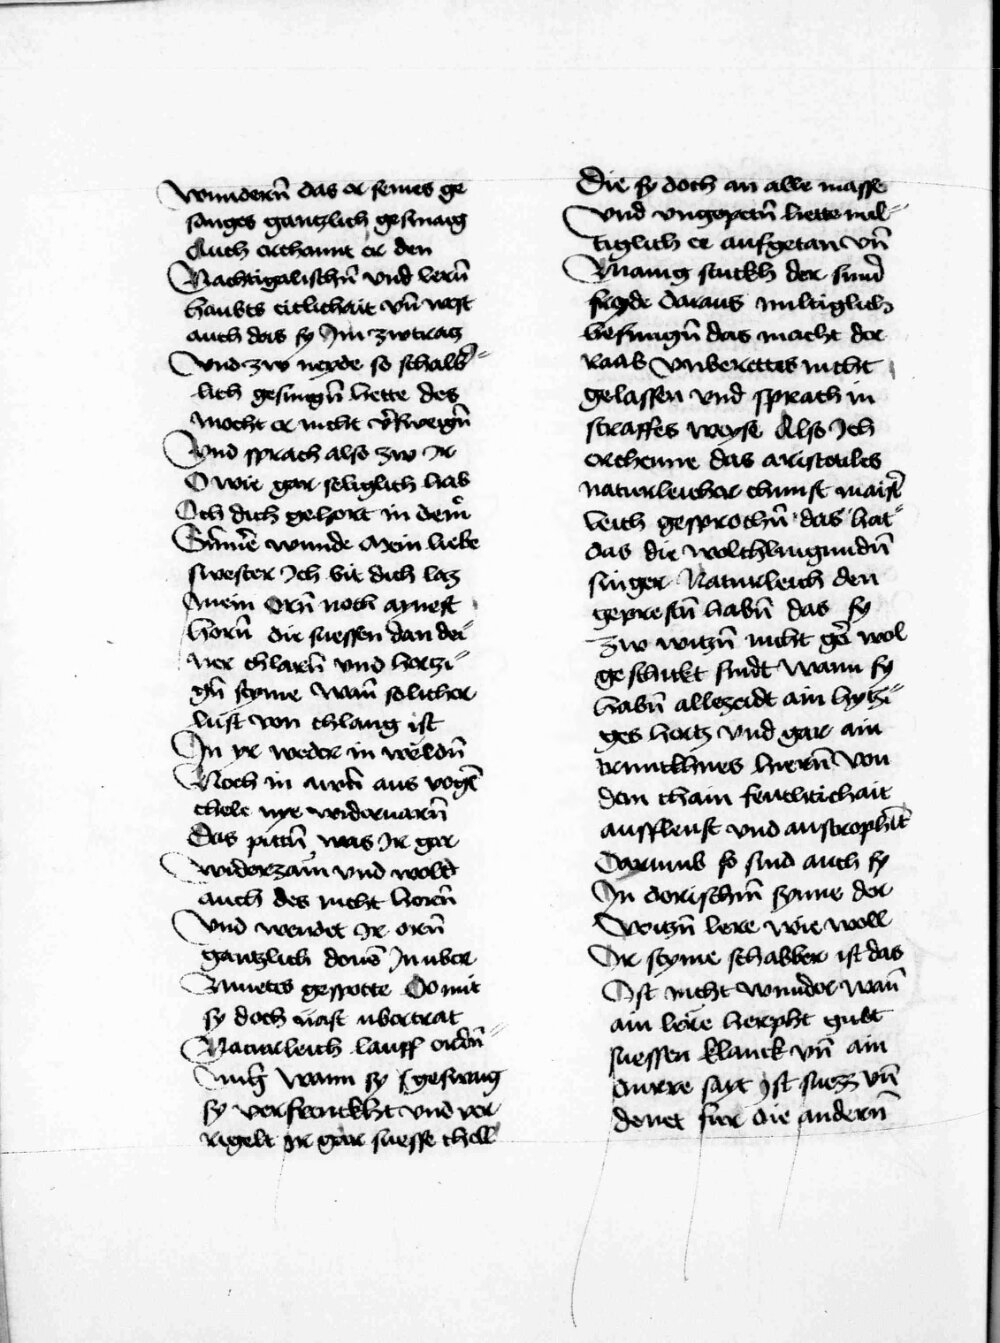 Wundern̄ das er seines ge
sanges gantzlich geswaig
Auch erchennt er den
Nachtigalischn̄ vnd lern̄
haubts eitlichait vn̄ west
auch das sy Im zw trag
Vnd zw neyde so schalk
lich gesungn̄ hette des
mocht er nicht v̄sweign̄
Vnd sprach also zw Ir
O wie gar seliglich hab
Ich dich gehort in dem
wunde Mein liebe
swester Ich bit dich laz
Mein orn̄ noch amest
horn̄ die suessen dan dei
ner chlarn̄ vnd hertzi
gn̄ styme Wan̄ solicher
lust von chlang ist
In yr weder in weldn̄
Noch in awn̄ aus vogel
chele nye widervarn̄
Das pittn̄ was Ir gar
widerzam vnd wolt
auch des nicht horn̄
Vnd wendet Ir orn̄
gantzlich In vber
gespotte Do mit
sy doch vast vbertrat
Naturleich lauff ordn̄
Wann sy geswaig
sy verschrenkht vnd ver
rigelt Ir gar suesse chell
Die sy doch an alle masse
Vnd vngepetn̄ hette mil
tiglich er aufgetan vn̄
Manig stuckh der sund̄
freyde daraus miltiglich
gesungn̄ das macht der
raab vnberettes nicht
gelassen vnd sprach in
straffes weyse Also Ich
erchenne das aristotiles
naturleicher chunst maist̄
leich gesprochn̄ das hat
das die wolchlingundn̄
singer Naturleich den
geprestn̄ habn̄ das sy
zw witzn̄ nicht gar wol
geschickt sindt Wann sy
habn̄ allezeidt ain hytzi
ges hertz vnd gar ain
trunckhnes hiern̄ von
dem chain feuchtichait
auffleuft vnd
Darumb so sind auch sy
In dorischm̄ synne der
Witzn̄ lere wie woll
Ir styme schabber ist das
Ist nicht wunder wan̄
ain lere herpht gibt
suessen klanck vn̄ ain
durre sayt Ist suezz vn̄
donet fur die andern̄